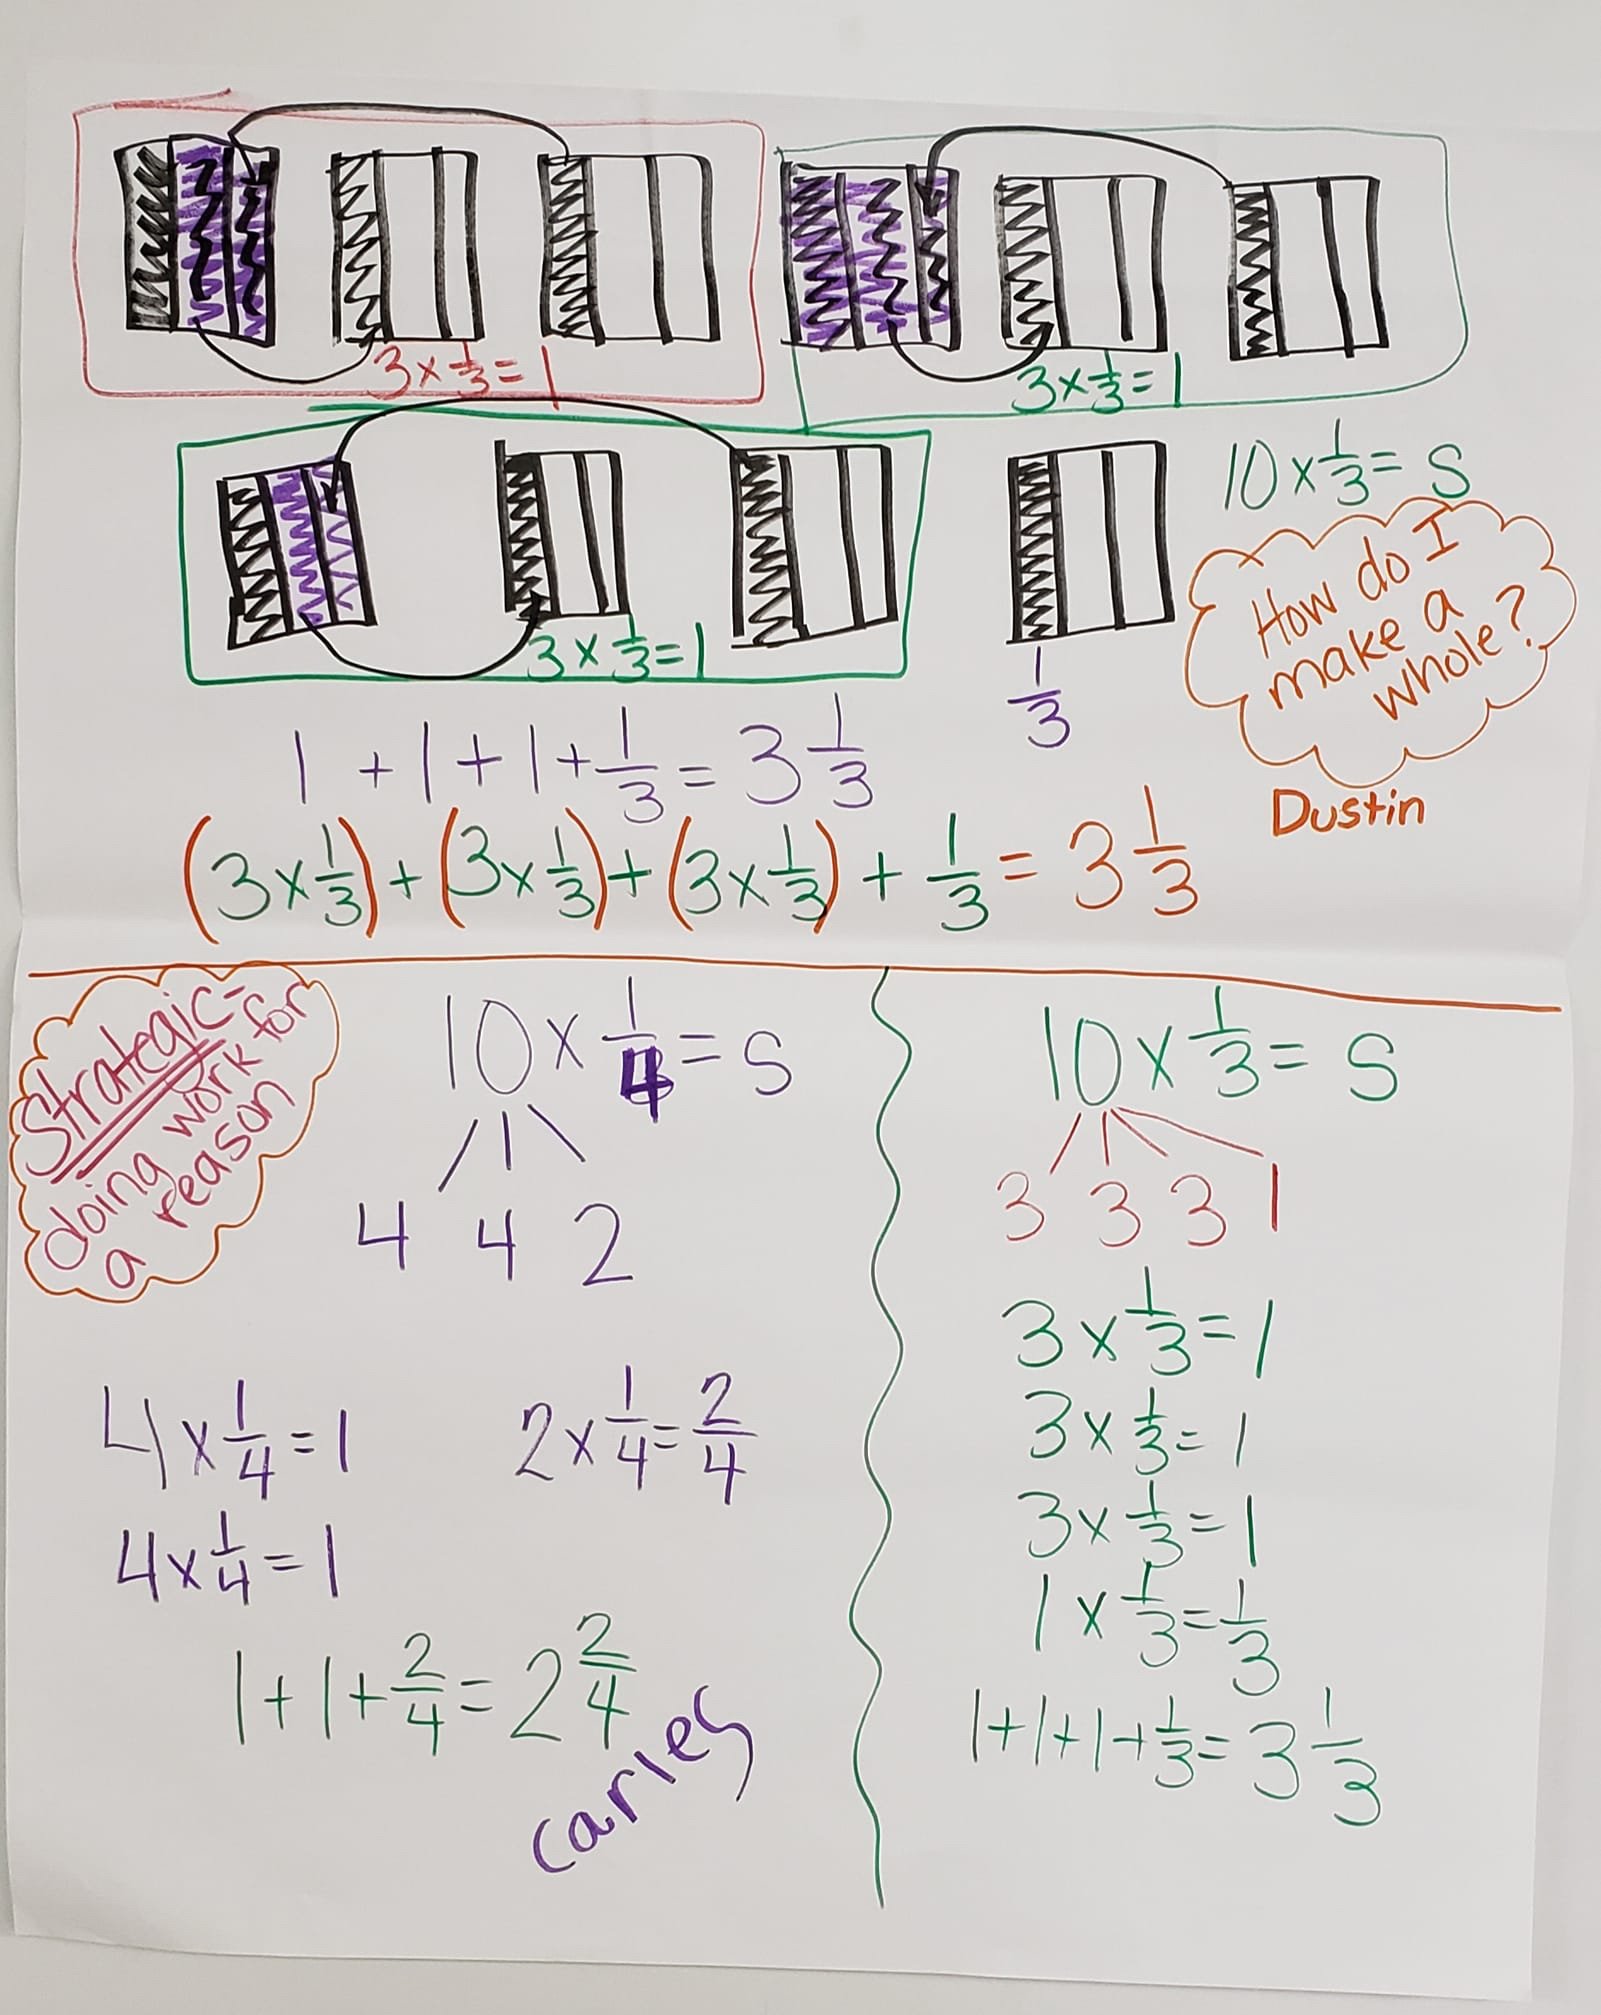 3 × 1/3 = 1
3 × 1/3 = 1
10 × 1/3 = S
3 × 1/3 = 1
1/3
How do I
make a
whole?
Dustin
1 + 1 + 1 + 1/3 = 3 1/3
(3 × 1/3) + (3 × 1/3) + (3 × 1/3) + 1/3 = 3 1/3
Strategic =
doing work for
a reason
10 × 1/4 = S
4 4 2
4 × 1/4 = 1
2 × 1/4 = 2/4
4 × 1/4 = 1
1 + 1 + 2/4 = 2 2/4
carley
10 × 1/3 = S
3 3 3 1
3 × 1/3 = 1
3 × 1/3 = 1
3 × 1/3 = 1
1 × 1/3 = 1/3
1 + 1 + 1 + 1/3 = 3 1/3